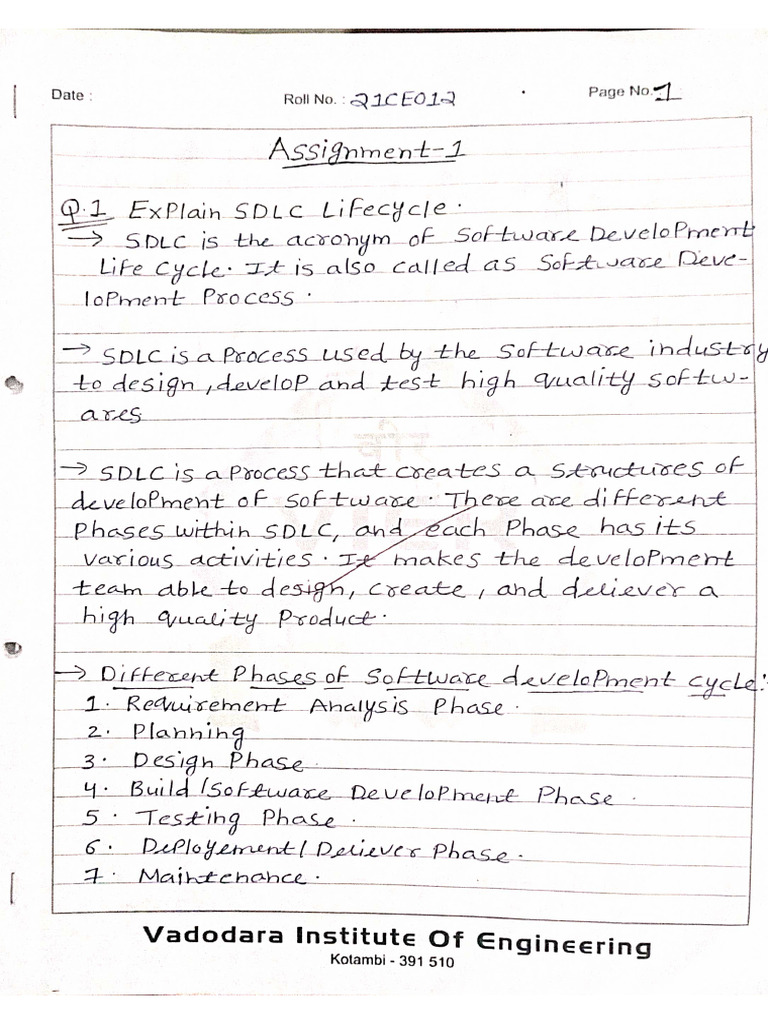 Date :
Roll No. : 21CE012
Page No. 1
Assignment-1
Q.1 Explain SDLC Lifecycle.
→ SDLC is the acronym of Software Development
Life Cycle. It is also called as Software Deve-
lopment Process.
→ SDLC is a Process used by the software industry
to design, develop and test high quality softw-
ares
→ SDLC is a Process that creates a structures of
development of software. There are different
Phases within SDLC, and each Phase has its
various activities. It makes the development
team able to design, create, and deliever a
high quality Product.
→ Different Phases of Software development cycle:-
1. Requirement Analysis Phase.
2. Planning
3. Design Phase.
4. Build/Software Development Phase.
5. Testing Phase.
6. Deployement/Deliever Phase.
7. Maintenance.
Vadodara Institute Of Engineering
Kotambi - 391 510